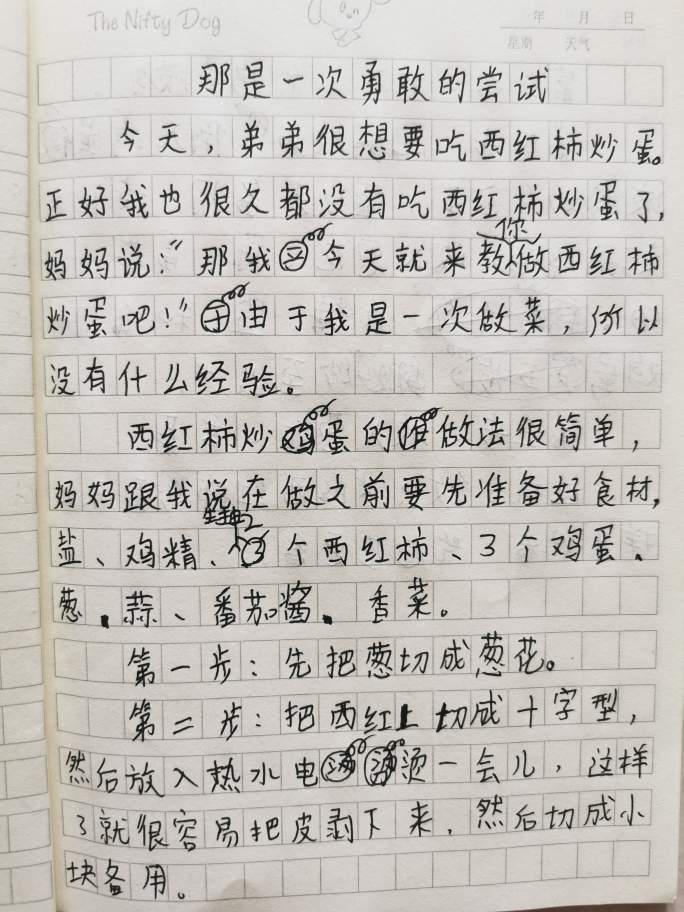 The Nifty Dog
年 月 日
星期 天气
那是一次勇敢的尝试
今天，弟弟很想要吃西红柿炒蛋。
正好我也很久都没有吃西红柿炒蛋了，
妈妈说：“那我今天就来教你做西红柿
炒蛋吧！”由于我是一次做菜，所以
没有什么经验。
西红柿炒蛋的做法很简单，
妈妈跟我说在做之前要先准备好食材，
盐、鸡精、生抽2个西红柿、3个鸡蛋、
葱、蒜、番茄酱、香菜。
第一步：先把葱切成葱花。
第二步：把西红上切成十字型，
然后放入热水电烫一会儿，这样
了就很容易把皮剥下来，然后切成小
块备用。